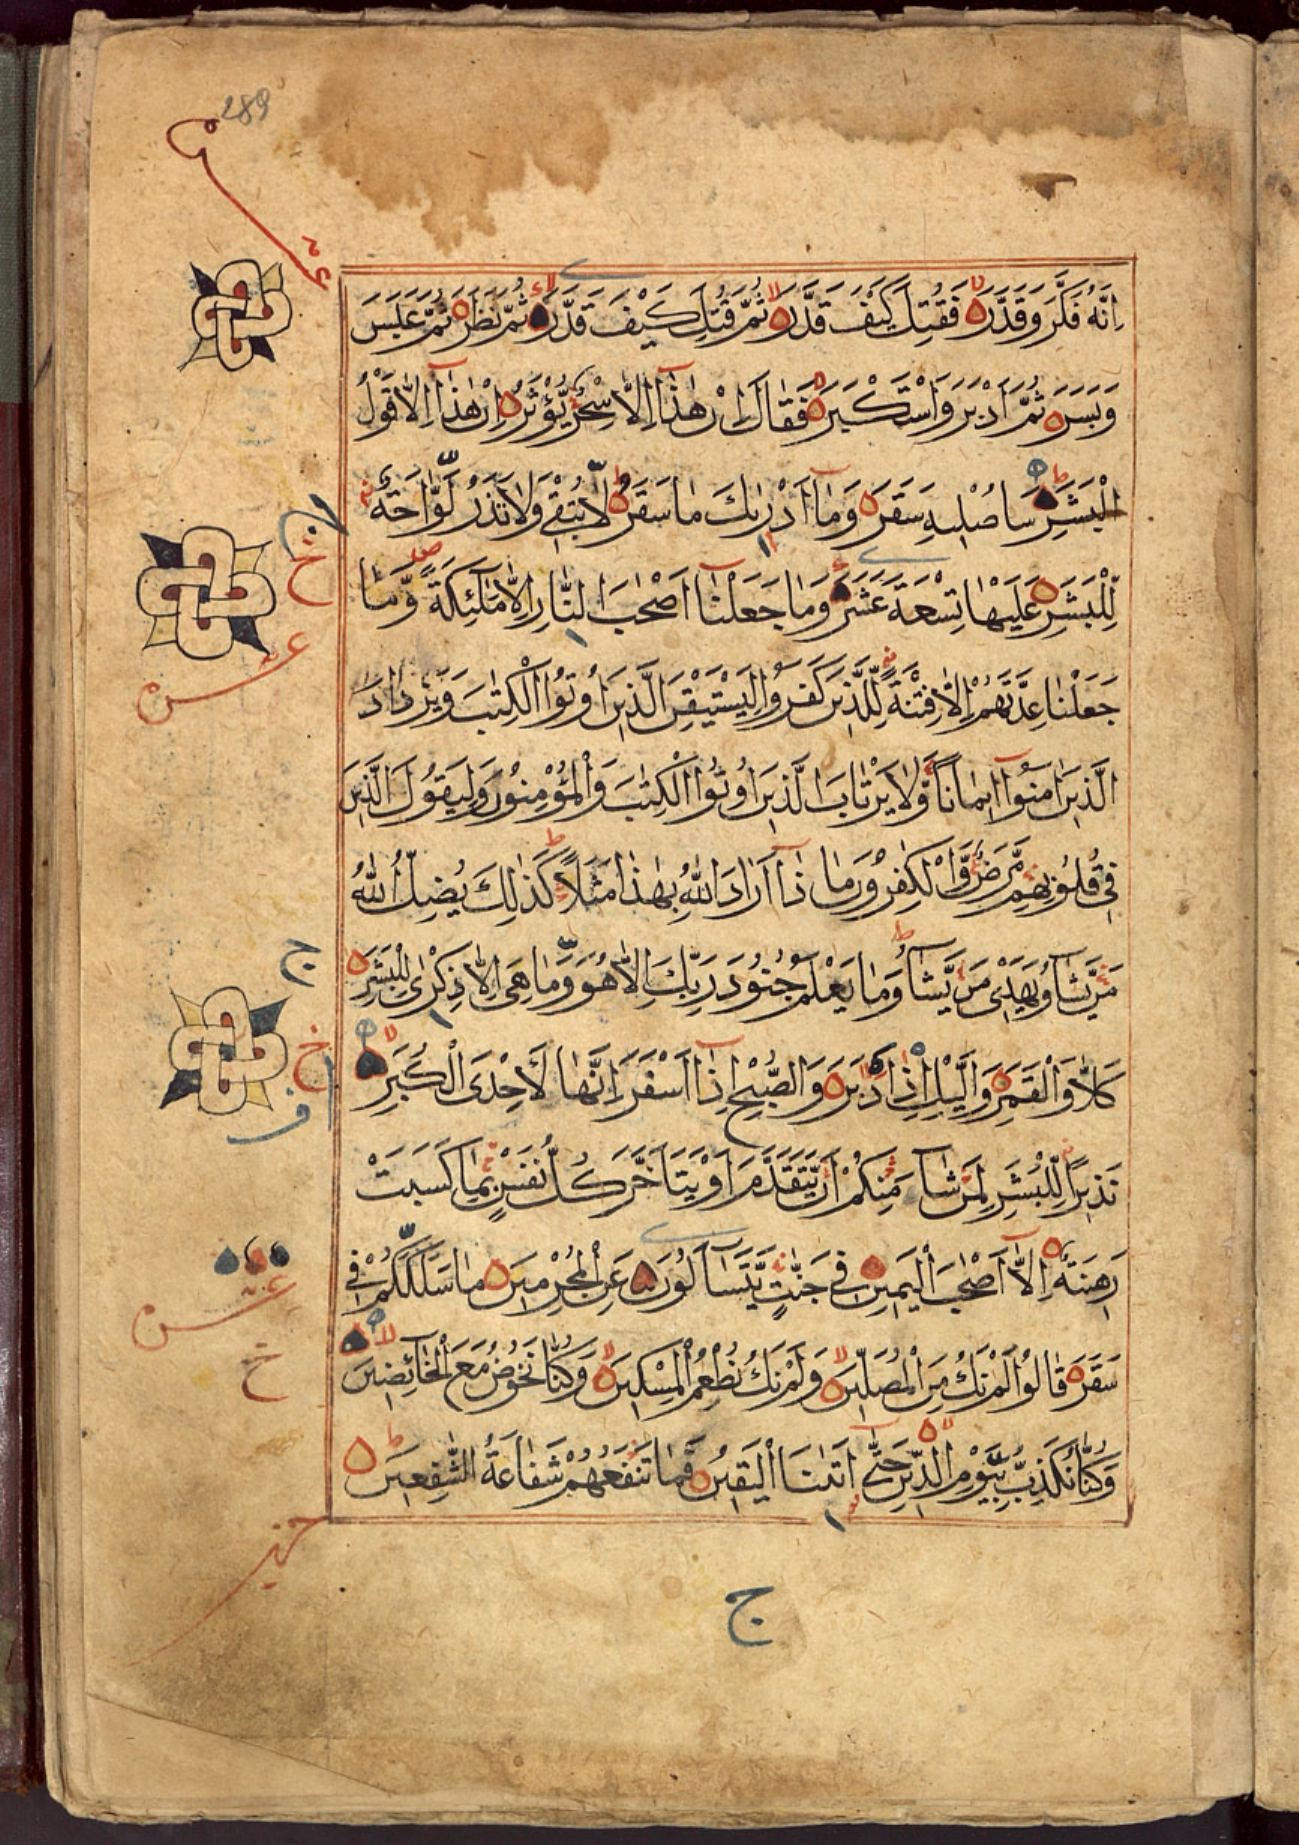 289
عشر
اِنَّهُ فَكَّرَ وَقَدَّرَ فَقُتِلَ كَيْفَ قَدَّرَ ثُمَّ قُتِلَ كَيْفَ قَدَّرَ ثُمَّ نَظَرَ ثُمَّ عَبَسَ
وَبَسَرَ ثُمَّ اَدْبَرَ وَاسْتَكْبَرَ فَقَالَ اِنْ هٰذَا اِلَّا سِحْرٌ يُّؤْثَرُ اِنْ هٰذَا اِلَّا قَوْلُ
الْبَشَرِ سَاُصْلِيهِ سَقَرَ وَمَا اَدْرٰىكَ مَا سَقَرُ لَا تُبْقِى وَلَا تَذَرُ لَوَّاحَةٌ
لِّلْبَشَرِ عَلَيْهَا تِسْعَةَ عَشَرَ وَمَا جَعَلْنَا اَصْحٰبَ النَّارِ اِلَّا مَلٰئِكَةً وَّمَا
جَعَلْنَا عِدَّتَهُمْ اِلَّا فِتْنَةً لِّلَّذِينَ كَفَرُوا لِيَسْتَيْقِنَ الَّذِينَ اُوتُوا الْكِتٰبَ وَيَزْدَادَ
الَّذِينَ اٰمَنُوا اِيمَانًا وَّلَا يَرْتَابَ الَّذِينَ اُوتُوا الْكِتٰبَ وَالْمُؤْمِنُونَ وَلِيَقُولَ الَّذِينَ
فِى قُلُوبِهِمْ مَّرَضٌ وَّالْكٰفِرُونَ مَا ذَا اَرَادَ اللّٰهُ بِهٰذَا مَثَلًا كَذٰلِكَ يُضِلُّ اللّٰهُ
مَنْ يَّشَاءُ وَيَهْدِى مَنْ يَّشَاءُ وَمَا يَعْلَمُ جُنُودَ رَبِّكَ اِلَّا هُوَ وَمَا هِىَ اِلَّا ذِكْرٰى لِلْبَشَرِ
كَلَّا وَالْقَمَرِ وَالَّيْلِ اِذْ اَدْبَرَ وَالصُّبْحِ اِذَا اَسْفَرَ اِنَّهَا لَاِحْدَى الْكُبَرِ
نَذِيرًا لِّلْبَشَرِ لِمَنْ شَاءَ مِنْكُمْ اَنْ يَّتَقَدَّمَ اَوْ يَتَاَخَّرَ كُلُّ نَفْسٍ بِمَا كَسَبَتْ
رَهِينَةٌ اِلَّا اَصْحٰبَ الْيَمِينِ فِى جَنّٰتٍ يَّتَسَاءَلُونَ عَنِ الْمُجْرِمِينَ مَا سَلَكَكُمْ فِى
سَقَرَ قَالُوا لَمْ نَكُ مِنَ الْمُصَلِّينَ وَلَمْ نَكُ نُطْعِمُ الْمِسْكِينَ وَكُنَّا نَخُوضُ مَعَ الْخَائِضِينَ
وَكُنَّا نُكَذِّبُ بِيَوْمِ الدِّينِ حَتّٰى اَتٰنَا الْيَقِينُ فَمَا تَنْفَعُهُمْ شَفَاعَةُ الشّٰفِعِينَ
ج
خ
عشر
ج
خ
عشر
خ
ج